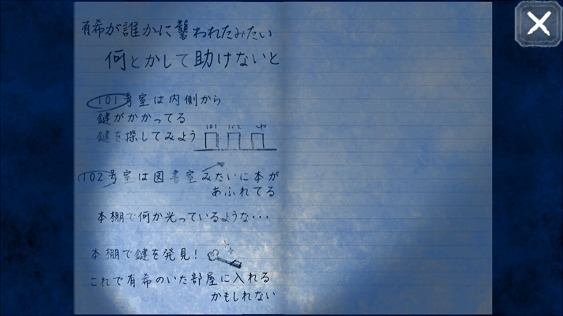 有希が誰かに襲われたみたい
何とかして助けないと
101号室は内側から
鍵がかかってる
鍵を探してみよう
101 102
102号室は図書室みたいに本が
あふれてる
本棚で何か光っているような・・・
本棚で鍵を発見!
これで有希のいた部屋に入れる
かもしれない